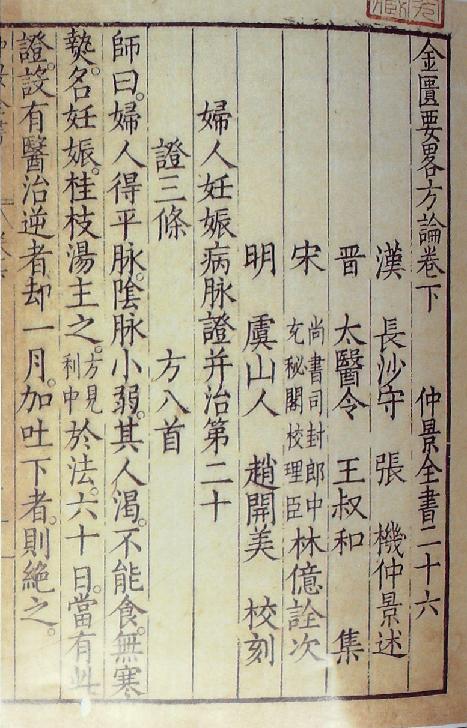 金匱要畧方論卷下 仲景全書二十六
漢 長沙守 張 機仲景述
晋 太醫令 王叔和 集
宋 尚書司封郎中充秘閣校理臣 林億詮次
明 虞山人 趙開美 校刻
婦人妊娠病脉證并治第二十
證三條 方八首
師曰。婦人得平脉。陰脉小弱。其人渴。不能食。無寒
𤍠。名妊娠。桂枝湯主之。方見利中於法。六十日。當有此
證。設有醫治逆者却一月。加吐下者。則絶之。